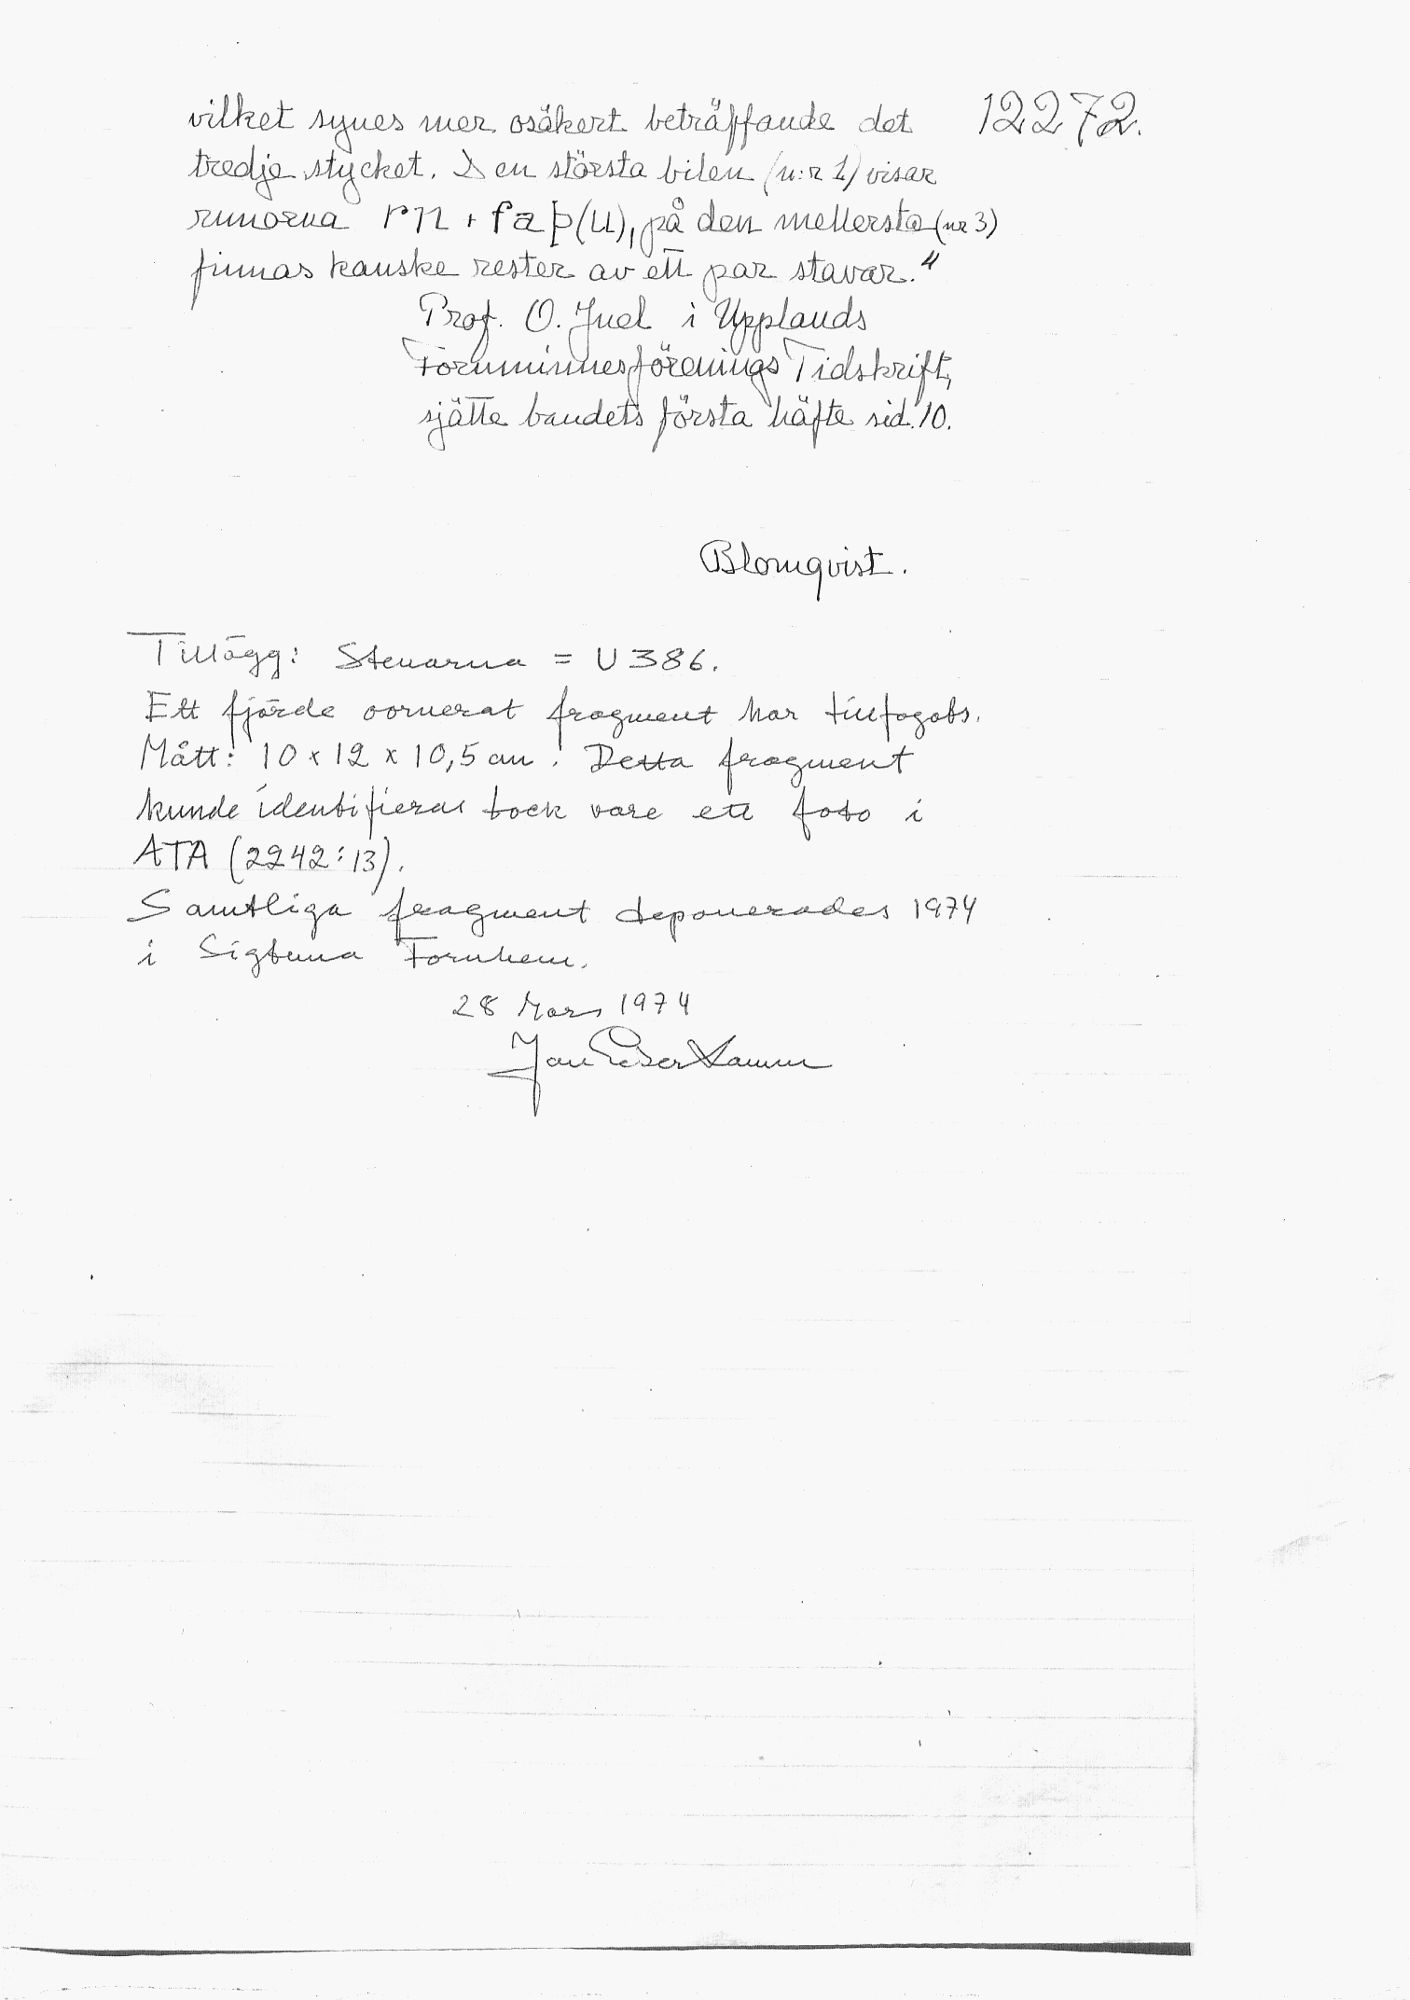 vilket synes mer osäkert beträffande det 12272.
tredje stycket. Den största biten (n:r 1) visar
runorna rn + faþ(u), på den mellersta (nr 3)
finnas kanske rester av ett par stavar."
Prof. O. Juel i Upplands
Fornminnesförenings Tidskrift,
sjätte bandets första häfte sid. 10.
Blomqvist.
Tillägg: Stenarna = U 386.
Ett fjärde oornerat fragment har tillfogats.
Mått: 10 x 12 x 10,5 cm. Detta fragment
kunde identifieras tack vare ett foto i
ATA (2242:13).
Samtliga fragment deponerades 1974
i Sigtuna Fornhem.
28 Mars 1974
Jan Peder Lamm